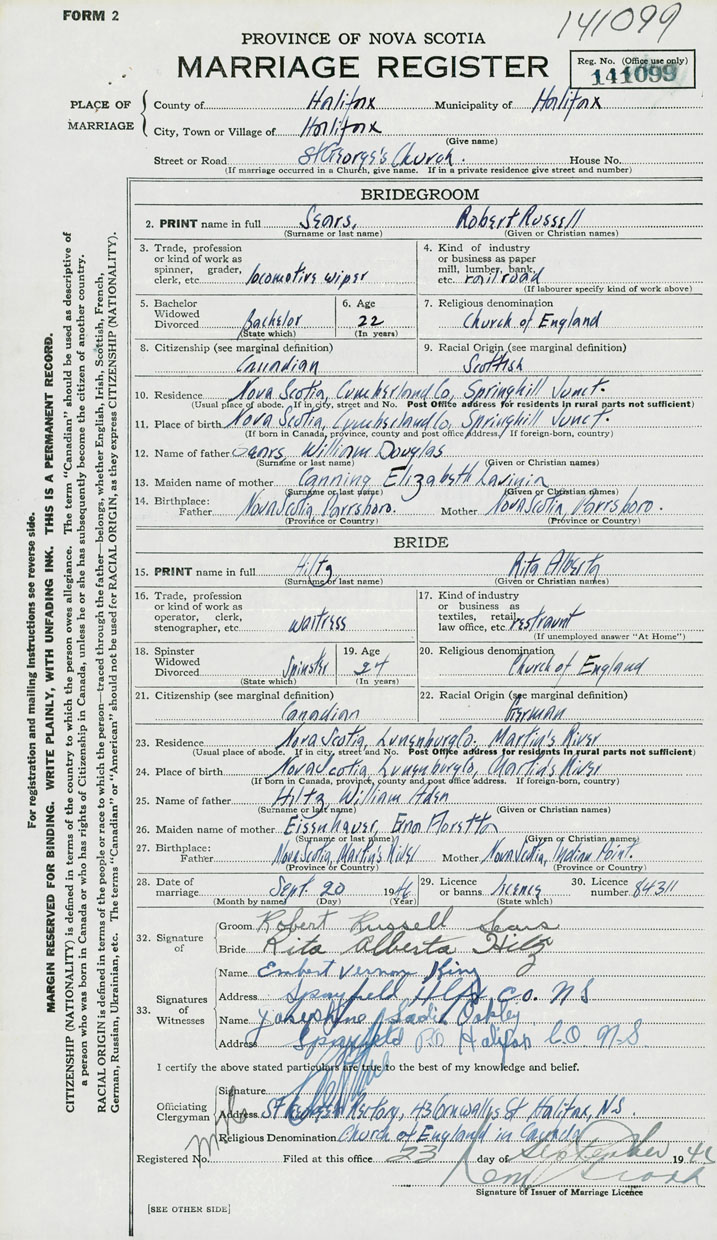 FORM 2
141099
PROVINCE OF NOVA SCOTIA
MARRIAGE REGISTER
Reg. No. (Office use only)
141099
PLACE OF MARRIAGE
County of Halifax Municipality of Halifax
City, Town or Village of Halifax
(Give name)
Street or Road St George's Church. House No.
(If marriage occurred in a Church, give name. If in a private residence give street and number)
BRIDEGROOM
2. PRINT name in full Sears, Robert Russell
(Surname or last name) (Given or Christian names)
3. Trade, profession or kind of work as spinner, grader, clerk, etc. locomotive wiper
4. Kind of industry or business as paper mill, lumber, bank, etc. railroad
(If labourer specify kind of work above)
5. Bachelor Widowed Divorced Bachelor (State which)
6. Age 22 (In years)
7. Religious denomination Church of England
8. Citizenship (see marginal definition) Canadian
9. Racial Origin (see marginal definition) Scottish
10. Residence Nova Scotia, Cumberland Co, Springhill Junct.
(Usual place of abode. If in city, street and No. Post Office address for residents in rural parts not sufficient)
11. Place of birth Nova Scotia, Cumberland Co, Springhill Junct.
(If born in Canada, province, county and post office address. If foreign-born, country)
12. Name of father Sears, William Douglas
(Surname or last name) (Given or Christian names)
13. Maiden name of mother Canning Elizabeth Lavinia
(Surname or last name) (Given or Christian names)
14. Birthplace: Father Nova Scotia, Parrsboro. Mother Nova Scotia, Parrsboro.
(Province or Country) (Province or Country)
BRIDE
15. PRINT name in full Hiltz Rita Alberta
(Surname or last name) (Given or Christian names)
16. Trade, profession or kind of work as operator, clerk, stenographer, etc. waitress
17. Kind of industry or business as textiles, retail, law office, etc. restraunt
(If unemployed answer "At Home")
18. Spinster Widowed Divorced Spinster (State which)
19. Age 24 (In years)
20. Religious denomination Church of England
21. Citizenship (see marginal definition) Canadian
22. Racial Origin (see marginal definition) German
23. Residence Nova Scotia, Lunenburg Co, Martin's River
(Usual place of abode. If in city, street and No. Post Office address for residents in rural parts not sufficient)
24. Place of birth Nova Scotia, Lunenburg Co, Martin's River
(If born in Canada, province, county and post office address. If foreign-born, country)
25. Name of father Hiltz, William
(Surname or last name) (Given or Christian names)
26. Maiden name of mother Eisenhauer,
(Surname or last name) (Given or Christian names)
27. Birthplace: Father Nova Scotia, Martin's River Mother Nova Scotia, Indian Point.
(Province or Country) (Province or Country)
28. Date of marriage Sept. 20 1946
(Month by name) (Day) (Year)
29. Licence or banns licence (State which)
30. Licence number 84311
32. Signature of
Groom Robert Russell Sears
Bride Rita Alberta Hiltz
33. Signatures of Witnesses
Name Embert Vernon King
Address Spryfield Hlfx Co. N S
Name Josephine Sadie Oakley
Address Spryfield P.O Halifax Co N-S.
I certify the above stated particulars are true to the best of my knowledge and belief.
Officiating Clergyman
Signature
Address St George's Rectory, 43 Cornwallis St Halifax, N.S.
Religious Denomination Church of England in Canada
Registered No. Filed at this office 23 day of September 1946
Signature of Issuer of Marriage Licence
[SEE OTHER SIDE]
For registration and mailing instructions see reverse side.
MARGIN RESERVED FOR BINDING. WRITE PLAINLY, WITH UNFADING INK. THIS IS A PERMANENT RECORD.
CITIZENSHIP (NATIONALITY) is defined in terms of the country to which the person owes allegiance. The term "Canadian" should be used as descriptive of
a person who was born in Canada or who has rights of Citizenship in Canada, unless he or she has subsequently become the citizen of another country.
RACIAL ORIGIN is defined in terms of the people or race to which the person—traced through the father—belongs, whether English, Irish, Scottish, French,
German, Russian, Ukrainian, etc. The terms "Canadian" or "American" should not be used for RACIAL ORIGIN, as they express CITIZENSHIP (NATIONALITY).